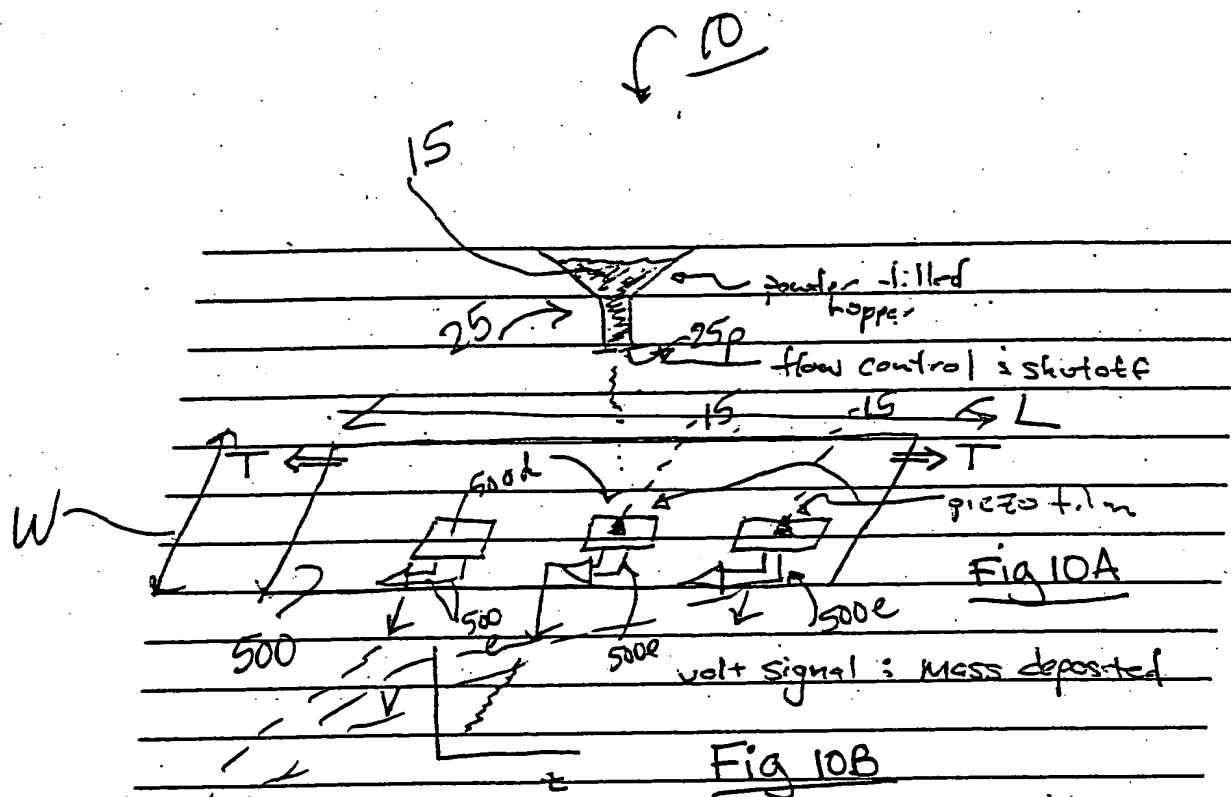 10
15
powder-filled
hopper
25
25p
flow control : shutoff
L
15 15
T T
500d
W
piezo film
Fig 10A
500
500
e
500e
500e
volt signal : mass deposited
V
t
Fig 10B